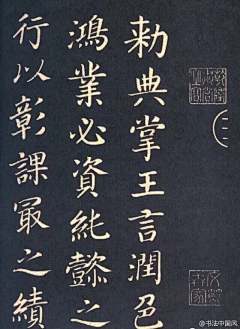 勅典掌王言潤色
鴻業必資純懿之
行以彰課最之績
@书法中国风